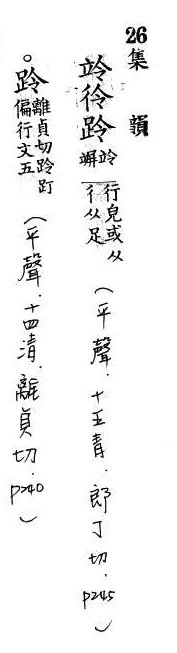 26集韻
竛彾跉竛竮行皃或从彳从足(平聲.十五青.郎丁切.P245)
。跉離貞切跉𧿼偏行文五(平聲.十四清.離貞切.P240)